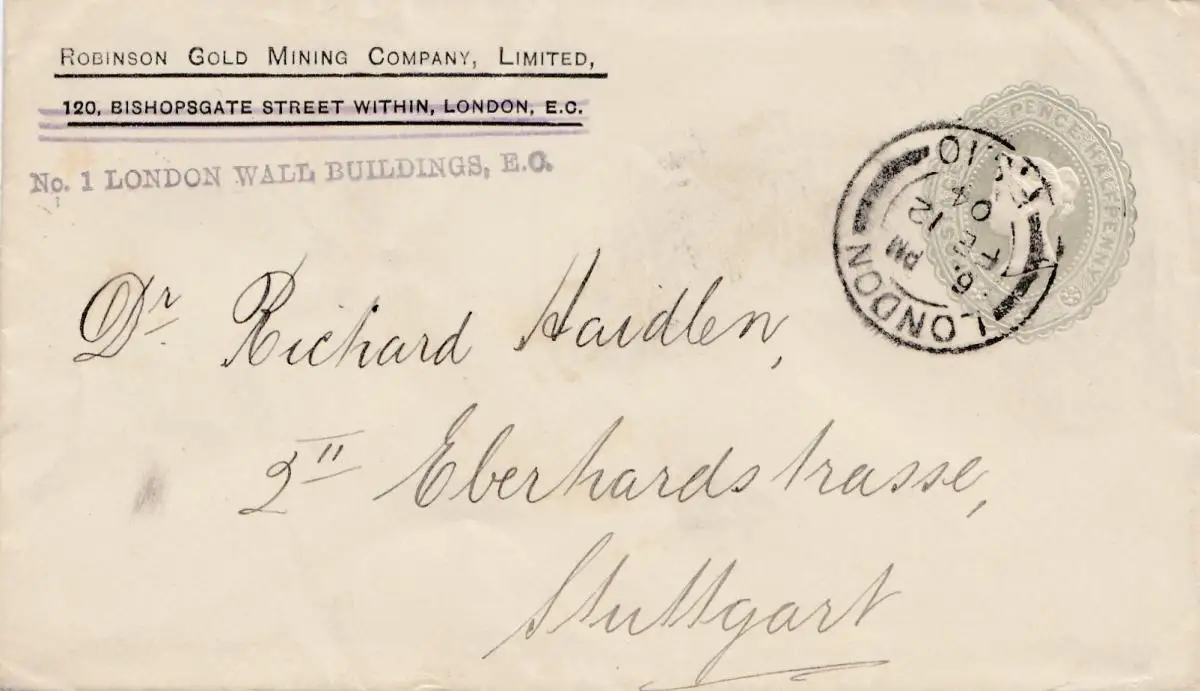 ROBINSON GOLD MINING COMPANY, LIMITED,
120, BISHOPSGATE STREET WITHIN, LONDON, E.C.
No. 1 LONDON WALL BUILDINGS, E.C.
PENCE HALFPENNY
LONDON
12
PM
FE
04
LONDON
Dr Richard Haidlen,
2 II Eberhardstrasse,
Stuttgart